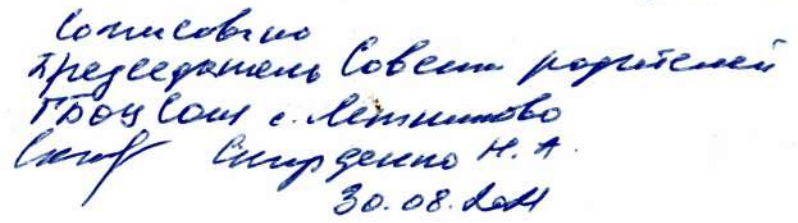 Согласовано
Председатель Совета родителей
ГБОУ СОШ с. Летниково
Н. А.
30.08.2021